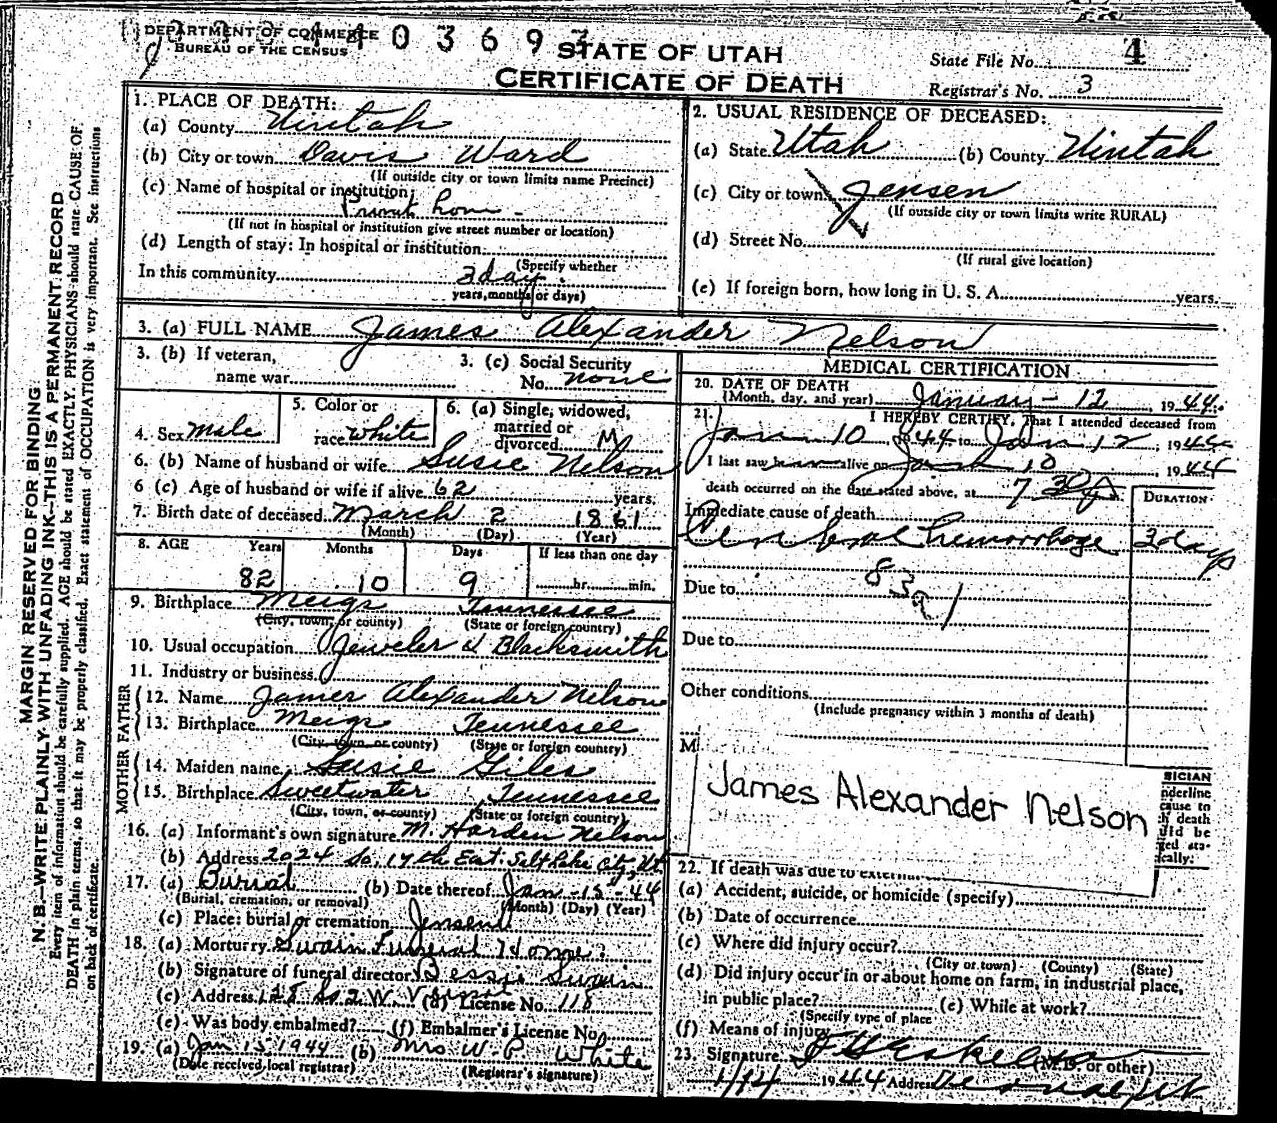 DEPARTMENT OF COMMERCE
BUREAU OF THE CENSUS
STATE OF UTAH
CERTIFICATE OF DEATH
State File No. 4
Registrar's No. 3
MARGIN RESERVED FOR BINDING
N. B.—WRITE PLAINLY WITH UNFADING INK—THIS IS A PERMANENT RECORD
Every item of information should be carefully supplied. AGE should be stated EXACTLY. PHYSICIANS should state CAUSE OF
DEATH in plain terms, so that it may be properly classified. Exact statement of OCCUPATION is very important. See instructions
on back of certificate.
1. PLACE OF DEATH:
(a) County Uintah
(b) City or town Davis Ward
(If outside city or town limits name Precinct)
(c) Name of hospital or institution:
(If not in hospital or institution give street number or location)
(d) Length of stay: In hospital or institution
(Specify whether
In this community 3 day
years, months or days)
2. USUAL RESIDENCE OF DECEASED:
(a) State Utah (b) County Uintah
(c) City or town Jensen
(If outside city or town limits write RURAL)
(d) Street No.
(If rural give location)
(e) If foreign born, how long in U. S. A. years.
3. (a) FULL NAME James Alexander Nelson
3. (b) If veteran,
name war
3. (c) Social Security
No. none
4. Sex male
5. Color or
race white
6. (a) Single, widowed,
married or
divorced M
6. (b) Name of husband or wife Susie Nelson
6 (c) Age of husband or wife if alive 62 years.
7. Birth date of deceased March 2 1861
(Month) (Day) (Year)
8. AGE Years Months Days If less than one day
82 10 9 hr. min.
9. Birthplace Meigs Tennessee
(City, town, or county) (State or foreign country)
10. Usual occupation Jeweler & Blacksmith
11. Industry or business
FATHER
12. Name James Alexander Nelson
13. Birthplace Meigs Tennessee
(City, town or county) (State or foreign country)
MOTHER
14. Maiden name Susie Giles
15. Birthplace Sweetwater Tennessee
(City, town, or county) (State or foreign country)
16. (a) Informant's own signature M. Harden Nelson
(b) Address 2024 So. 17th East Salt Lake City, Ut.
17. (a) Burial (b) Date thereof Jan-15-44
(Burial, cremation, or removal) (Month) (Day) (Year)
(c) Place: burial or cremation Jensen
18. (a) Morturry Swain Funeral Home
(b) Signature of funeral director Bessie Swain
(c) Address (d) License No. 118
(e) Was body embalmed? (f) Embalmer's License No.
19. (a) Jan 15 1944 (b) Mrs W. P. White
(Date received local registrar) (Registrar's signature)
MEDICAL CERTIFICATION
20. DATE OF DEATH
(Month, day, and year) January - 12, 1944.
21. I HEREBY CERTIFY, That I attended deceased from
Jan 10 1944 to Jan 12, 1944
I last saw him alive on Jan 10 1944
death occurred on the date stated above, at 7 30
DURATION
Immediate cause of death
Cerebral hemorrhage 3 days
Due to
Due to
Other conditions
(Include pregnancy within 3 months of death)
James Alexander Nelson
SICIAN
nderline
cause to
h death
uld be
ged sta-
cally.
22. If death was due to external
(a) Accident, suicide, or homicide (specify)
(b) Date of occurrence
(c) Where did injury occur?
(City or town) (County) (State)
(d) Did injury occur in or about home on farm, in industrial place,
in public place? (e) While at work?
(Specify type of place
(f) Means of injury
23. Signature (M.D. or other)
1/14 1944 Address